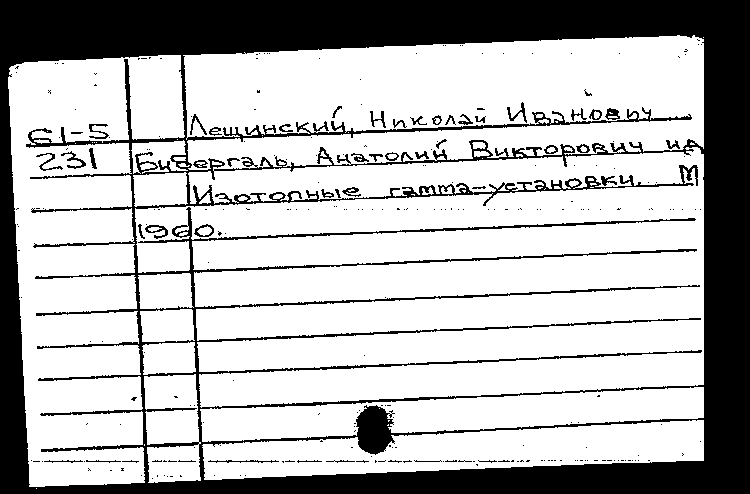 61-5 Лещинский, Николай Иванович
231 Бибергаль, Анатолий Викторович и др
Изотопные гамма-установки. М
1960.